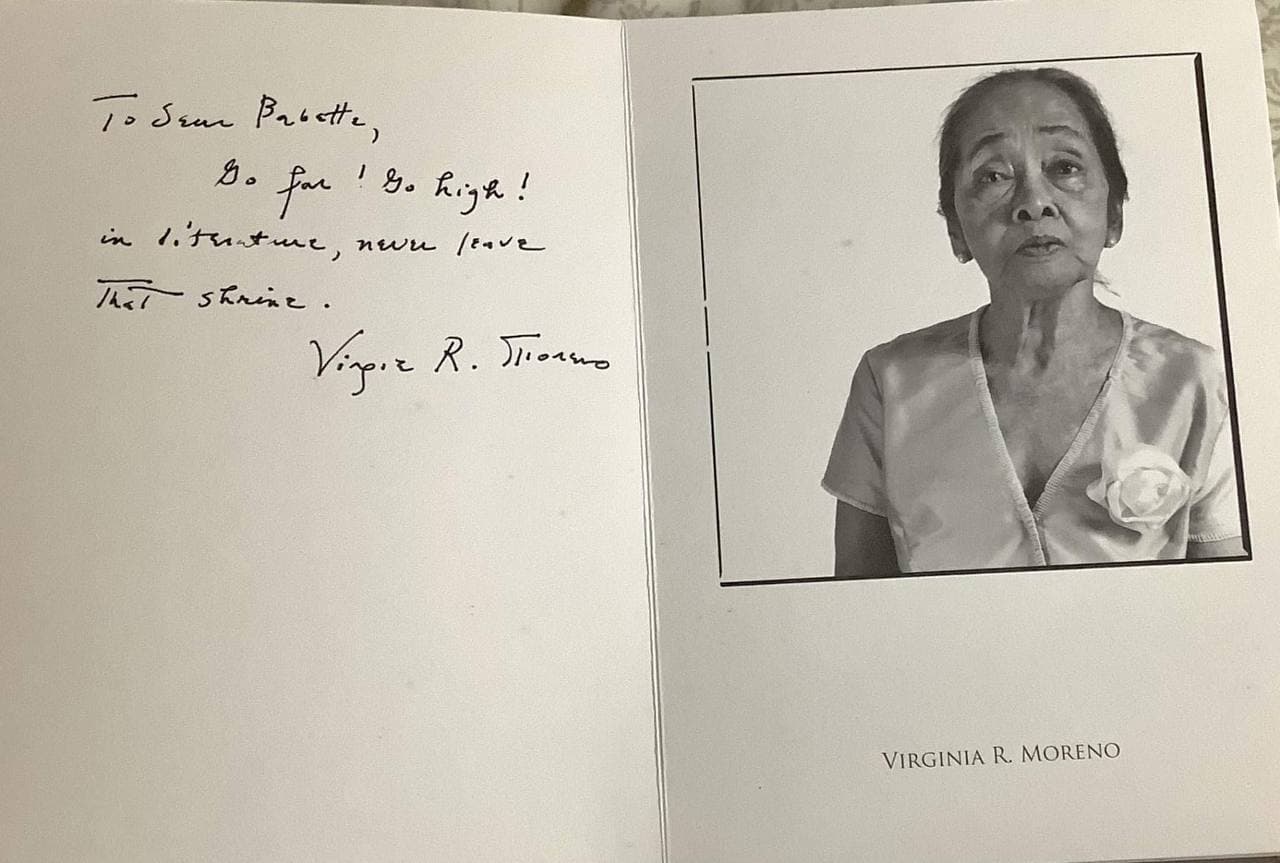 To dear Babette,
Go far! Go high!
in literature, never leave
That shrine.
Virgie R. Moreno
VIRGINIA R. MORENO